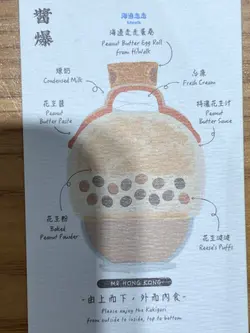 醬爆
海邊走走
海邊走走蛋卷
Peanut Butter Egg Roll
from HiWalk
煉奶
Condensed Milk
忌廉
Fresh Cream
花生醬
Peanut
Butter Paste
特選花生汁
Peanut
Butter Sauce
花生粉
Baked
Peanut Powder
Reese's Puffs
MR HONG KONG
-由上而下，外而內食-
Please enjoy the Kakigori
from outside to inside, top to bottom.